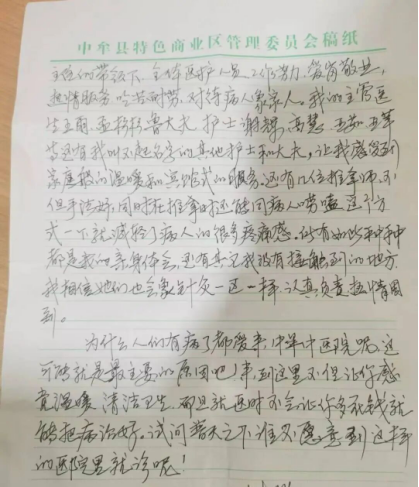 中牟县特色商业区管理委员会稿纸
主任的带领下、全体医护人员、工作努力、爱岗敬业、
热情服务、吃苦耐劳、对待病人象家人。我的主管医
生王丽、孟彬彬鲁大夫、护士谢辉、高慧、
等还有我叫不起名字的其他护士和大夫，让我感受到
家庭般的温暖和宾馆式的服务。还有几位推拿师、不
但手法好，同时在推拿时还能同病人唠嗑这个方
式一下就减轻了病人的很多疼痛感。所有如此种种
都是我的亲身体会，还有其它我没有接触到的地方
我相信她们也会象针灸一区一样、认真负责热情周
到。
为什么人们有病了都爱来中牟中医院呢。这
可能就是最主要的原因吧！来到这里不但让你感
觉温暖、清洁卫生、而且就医时不会让你多花钱就
能把病治好、试问普天之下谁又不愿意到这样
的医院里就诊呢！